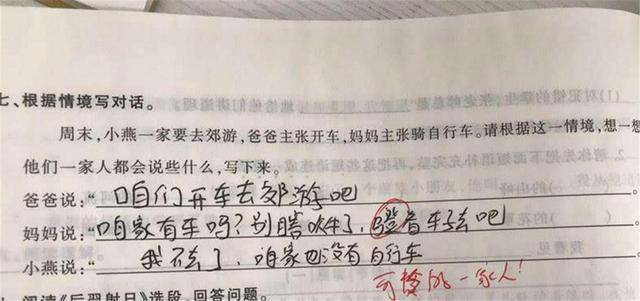 七、根据情境写对话。
周末，小燕一家要去郊游，爸爸主张开车，妈妈主张骑自行车。请根据这一情境，想一想
他们一家人都会说些什么，写下来。
爸爸说：“咱们开车去郊游吧
妈妈说：“咱家有车吗？别瞎吹牛了，蹬着车子去吧
小燕说：“我不去了，咱家也没有自行车
可怜的一家人！
阅读《后羿射日》选段，回答问题。